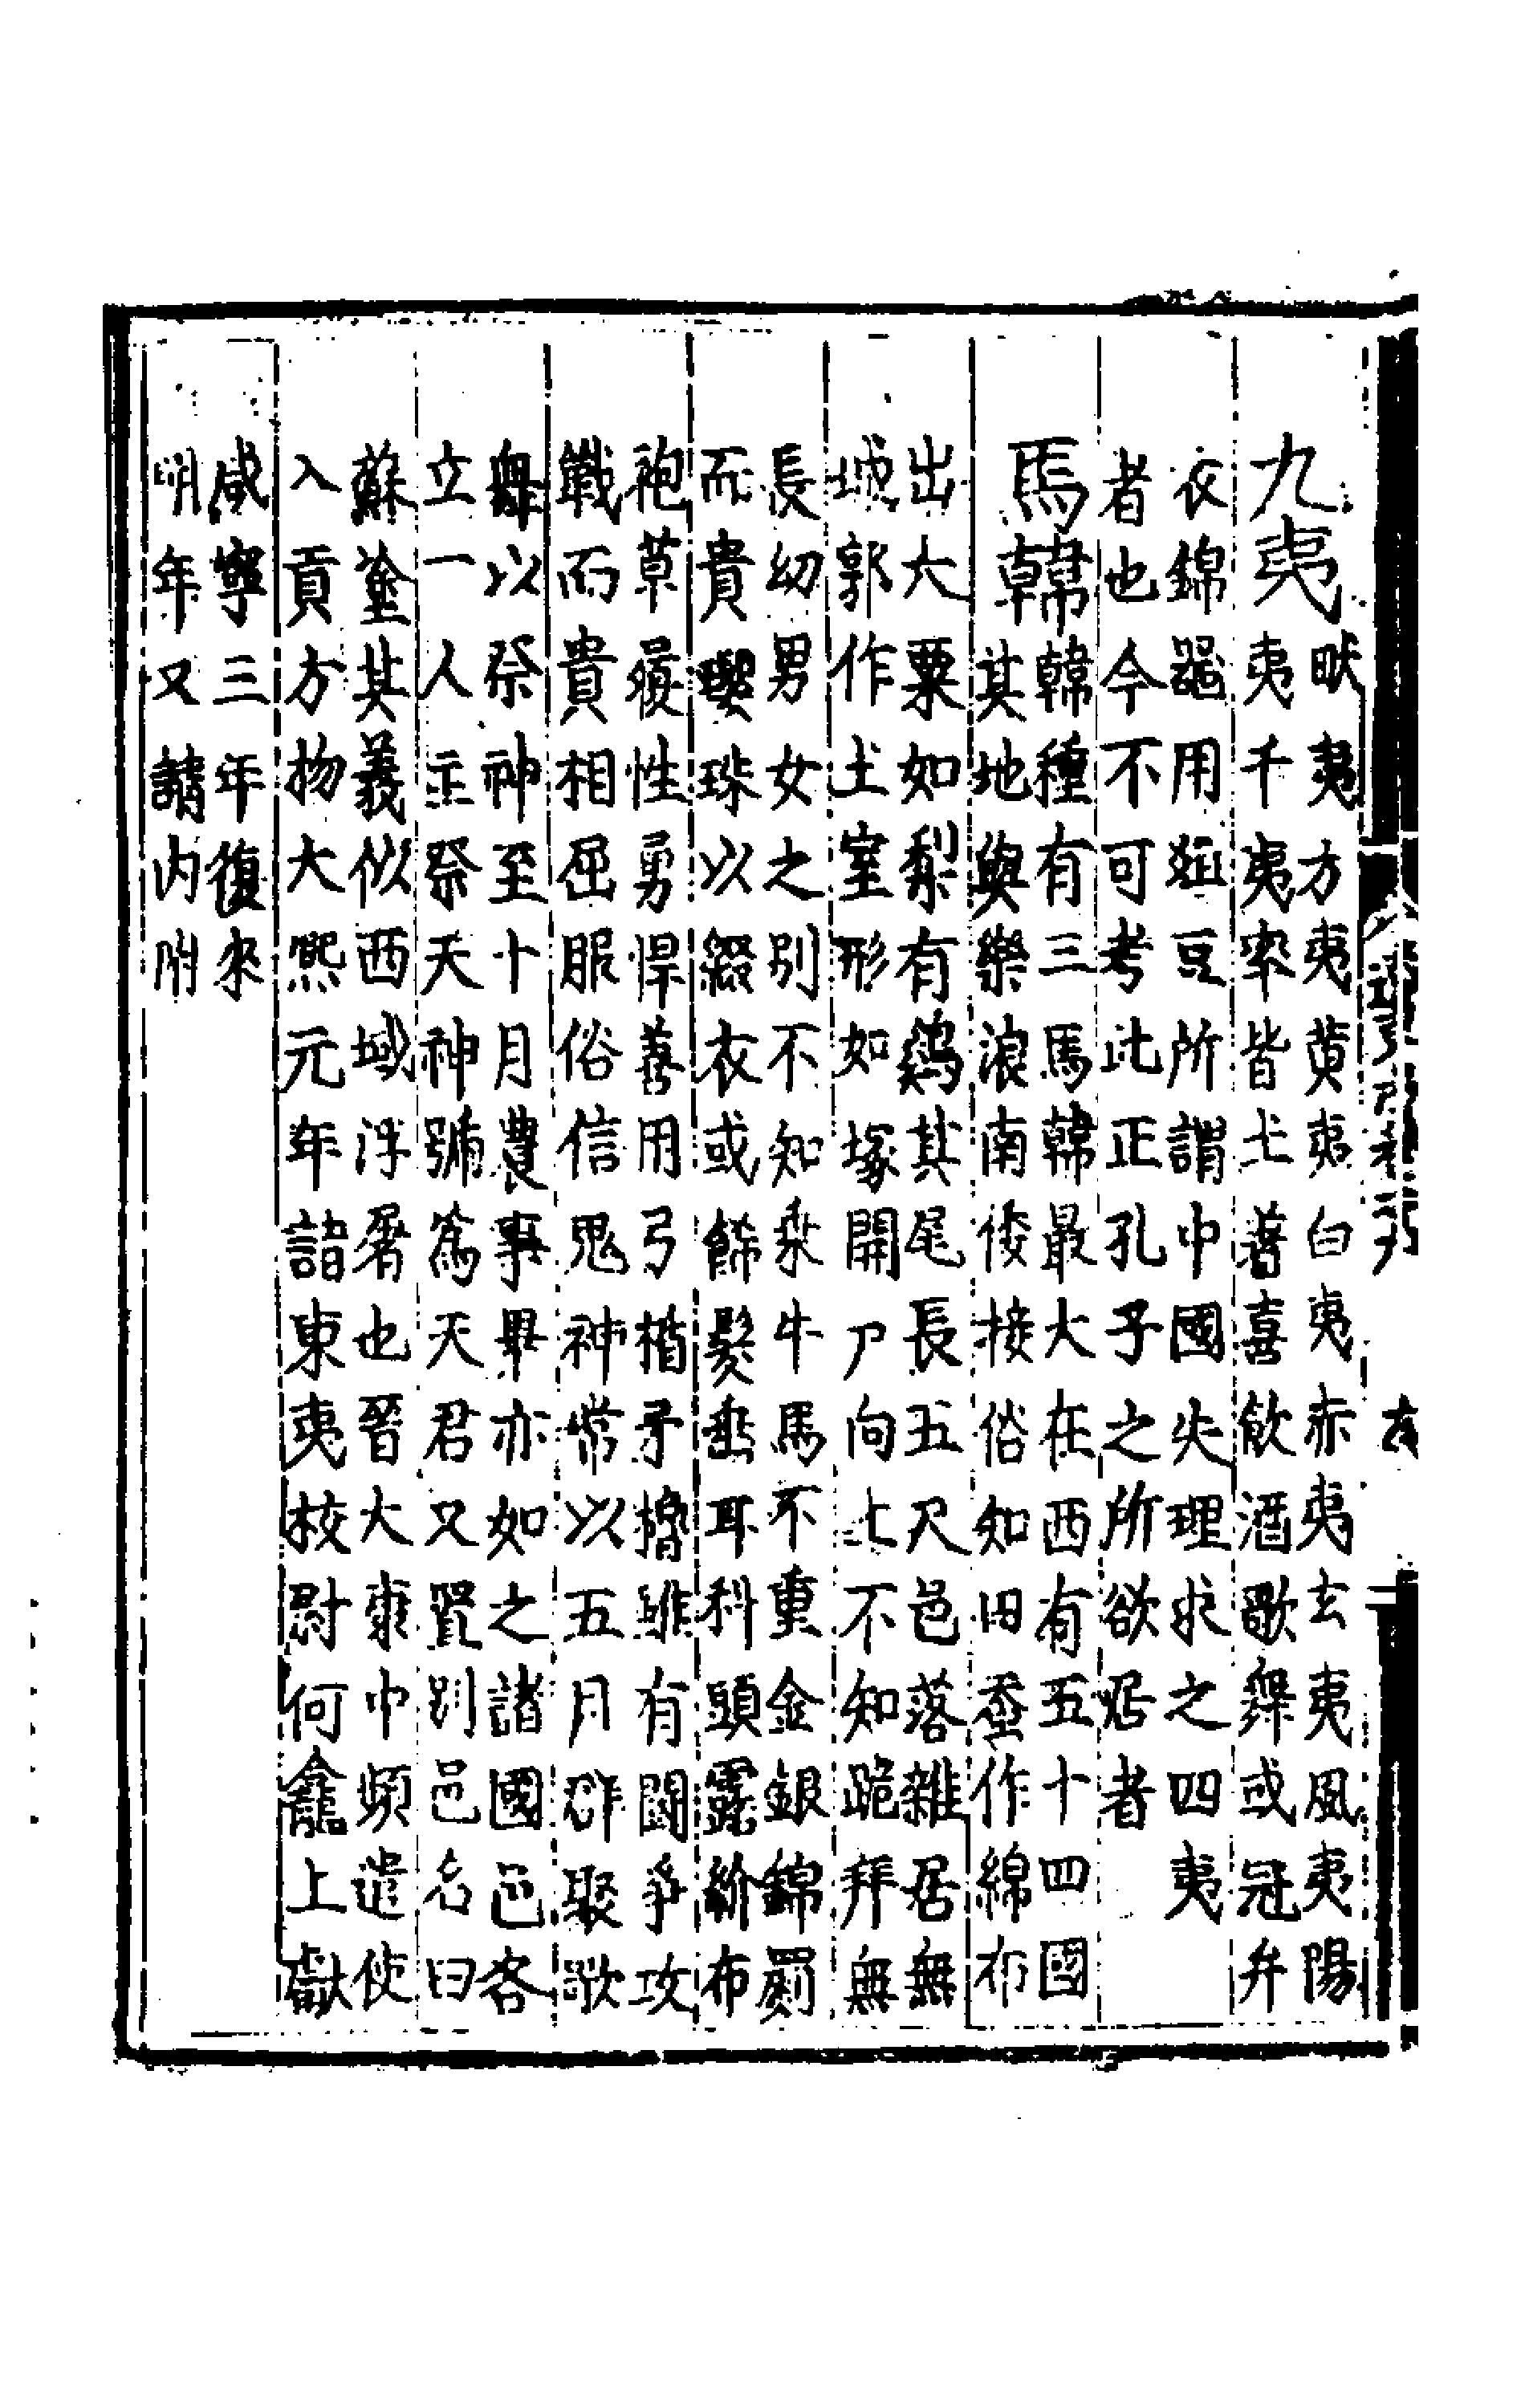 九夷畎夷方夷黄夷白夷赤夷玄夷風夷陽
夷千夷夷率皆土著喜飲酒歌舞或冠弁
衣錦器用俎豆所謂中國失理求之四夷
者也今不可考此正孔子之所欲居者
馬韓韓種有三馬韓最大在西有五十四國
其地與樂浪南倭接俗知田蚕作綿布
出大粟如梨有鷄其尾長五尺邑落雜居無
城郭作土室形如塚開戸向上不知跪拜無
長幼男女之别不知乘牛馬不重金銀錦罽
而貴瓔珠以綴衣或餙髮垂耳科頭露紒布
袍草履性勇悍善用弓楯矛櫓雖有鬬爭攻
戰而貴相屈服俗信鬼神常以五月群聚歌
舞以祭神至十月農事畢亦如之諸國邑各
立一人主祭天神號為天君又置别邑名曰
蘇塗其義似西域浮屠也晉大康中頻遣使
入貢方物大熈元年詣東夷校尉何龕上獻
咸寧三年復來
明年又請内附